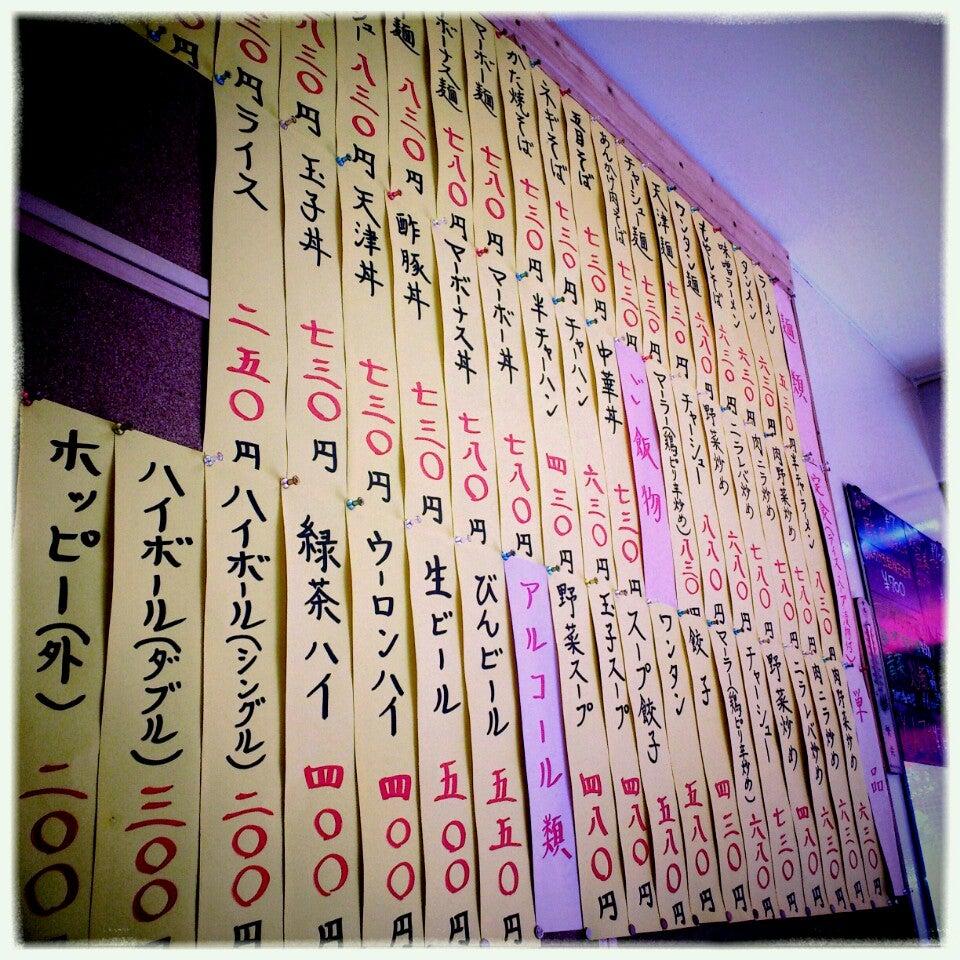 麺類
ラーメン 五三〇円
タンメン 六三〇円
味噌ラーメン 六三〇円
もやしそば 六三〇円
ワンタン麺 六八〇円
天津麺 七三〇円
チャーシュー麺 七三〇円
あんかけ肉そば 七三〇円
五目そば 七三〇円
ネギそば 七三〇円
かた焼そば 七三〇円
マーボー麺 七八〇円
ボーナス麺 七八〇円
麺 八三〇円
八三〇円
八三〇円
三〇円
円
定食
半チャーラーメン 八三〇円
肉野菜炒め 七八〇円
肉ニラ炒め 七八〇円
ニラレバ炒め 七八〇円
野菜炒め 六八〇円
チャーシュー 八八〇円
マーラー(鶏ピリ辛炒め) 八三〇円
ご飯物
中華丼 七三〇円
チャーハン 六三〇円
半チャーハン 四三〇円
マーボー丼 七八〇円
マーボーナス丼 七八〇円
酢豚丼 七三〇円
天津丼 七三〇円
玉子丼 七三〇円
ライス 二五〇円
単品
肉野菜炒め 六三〇円
肉ニラ炒め 六三〇円
ニラレバ炒め 六三〇円
野菜炒め 四八〇円
チャーシュー 七三〇円
マーラー(鶏ピリ辛炒め) 六八〇円
餃子 四三〇円
ワンタン 五八〇円
スープ餃子 五八〇円
玉子スープ 四八〇円
野菜スープ 四八〇円
アルコール類
びんビール 五五〇円
生ビール 五〇〇円
ウーロンハイ 四〇〇円
緑茶ハイ 四〇〇円
ハイボール(シングル) 二〇〇円
ハイボール(ダブル) 三〇〇円
ホッピー(外) 二〇〇円